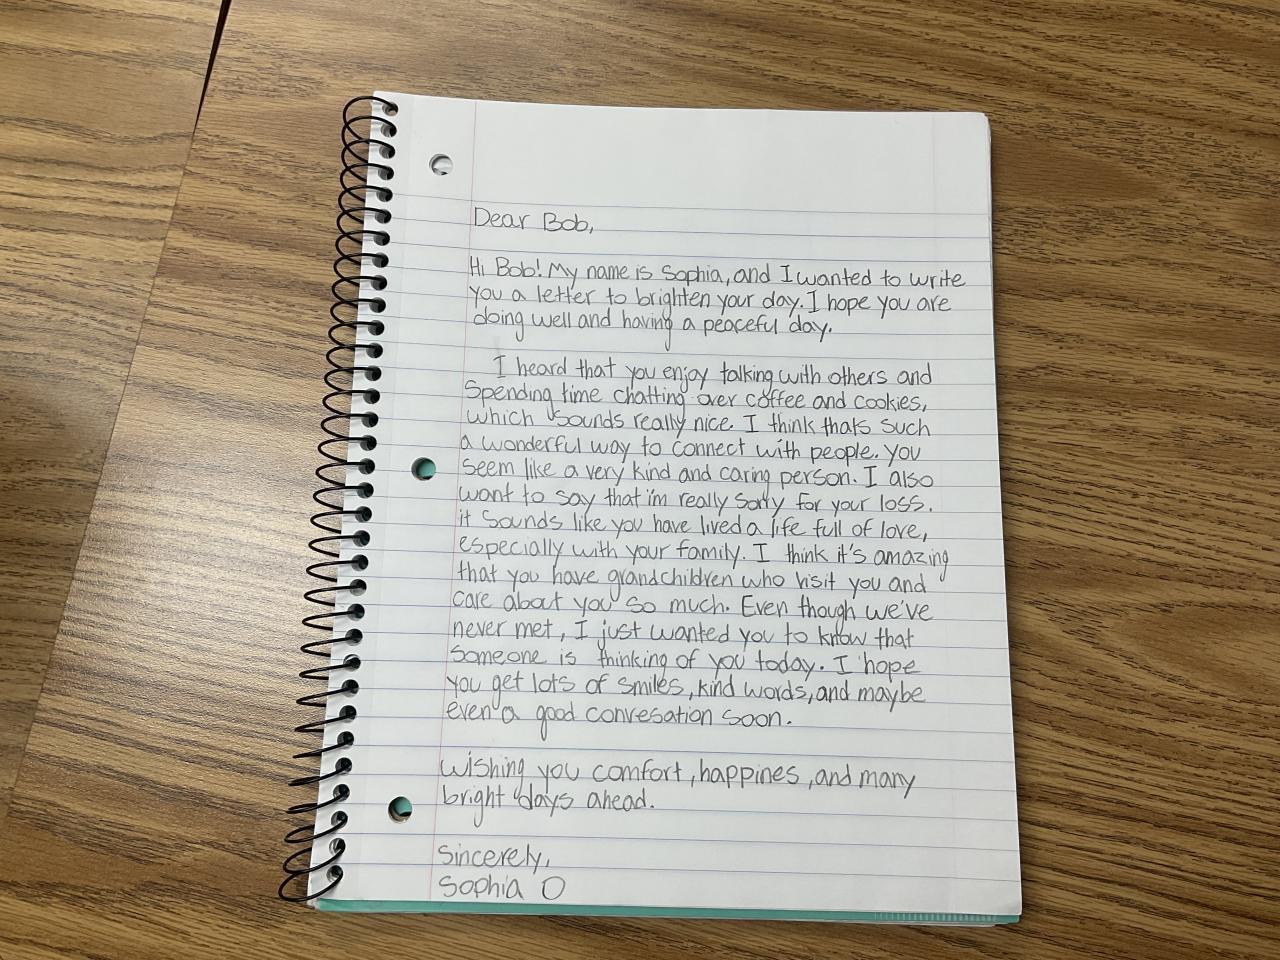 Dear Bob,
Hi Bob! My name is Sophia, and I wanted to write
you a letter to brighten your day. I hope you are
doing well and having a peaceful day.
I heard that you enjoy talking with others and
spending time chatting over coffee and cookies,
which sounds really nice. I think thats such
a wonderful way to connect with people. You
seem like a very kind and caring person. I also
want to say that i'm really sorry for your loss.
it sounds like you have lived a life full of love,
especially with your family. I think it's amazing
that you have grandchildren who visit you and
care about you so much. Even though we've
never met, I just wanted you to know that
someone is thinking of you today. I hope
you get lots of smiles, kind words, and maybe
even a good convesation soon.
wishing you comfort, happines, and many
bright days ahead.
Sincerely,
Sophia O